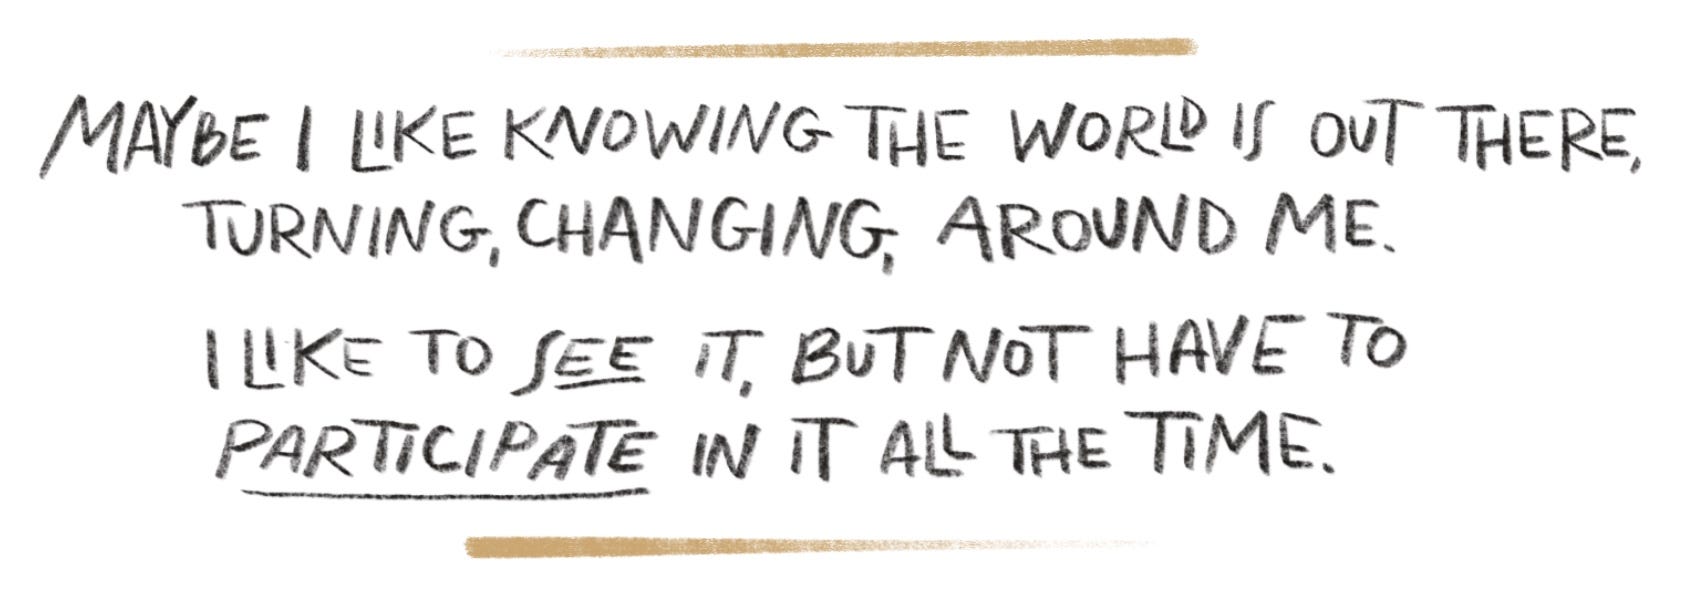 MAYBE I LIKE KNOWING THE WORLD IS OUT THERE,
TURNING, CHANGING, AROUND ME.
I LIKE TO SEE IT, BUT NOT HAVE TO
PARTICIPATE IN IT ALL THE TIME.